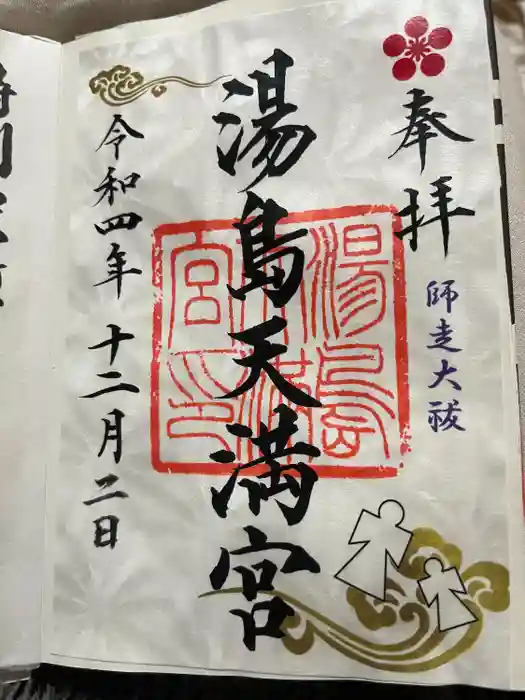 奉拝
師走大祓
湯島天満宮
湯島天満宮印
令和四年 十二月二日